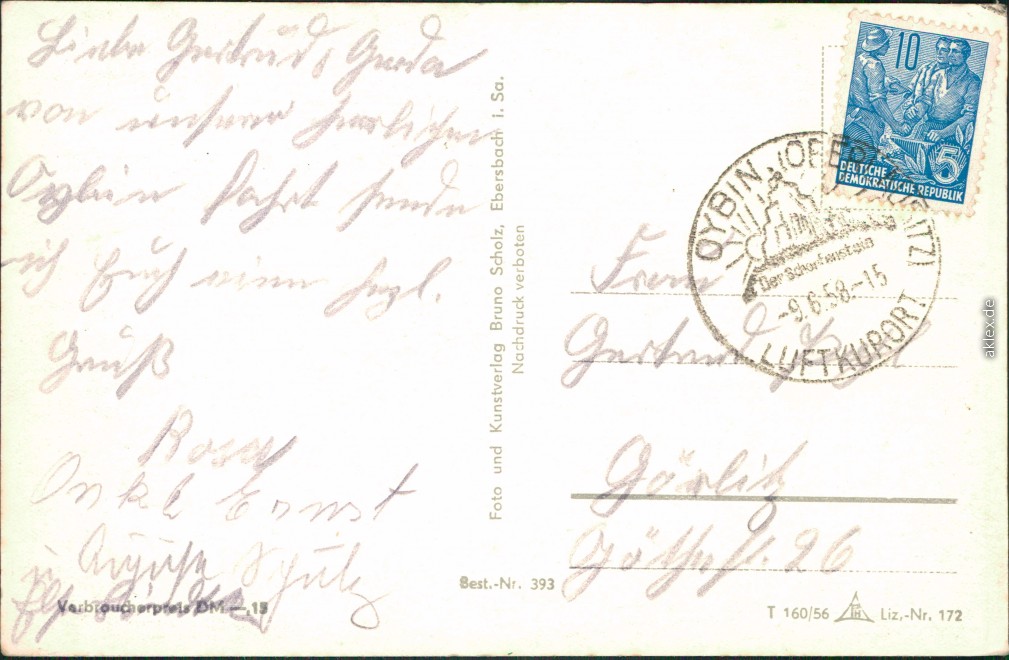 Liebe Gertrud, Gerda
von unserer herrlichen
Oybin fahrt sende
ich Euch einen herzl.
Gruß
Rosa
Onkl Ernst
u Auguste Schulz
Verbraucherpreis DM —,15
Foto und Kunstverlag Bruno Scholz, Ebersbach i. Sa.
Nachdruck verboten
Best.-Nr. 393
10
5
DEUTSCHE
DEMOKRATISCHE REPUBLIK
OYBIN
LUFTKURORT
Der Scharfenstein
-9.6.58.-15
Frau
Gertrud
Görlitz
Göthestr. 26
T 160/56
Liz.-Nr. 172
aklex.de